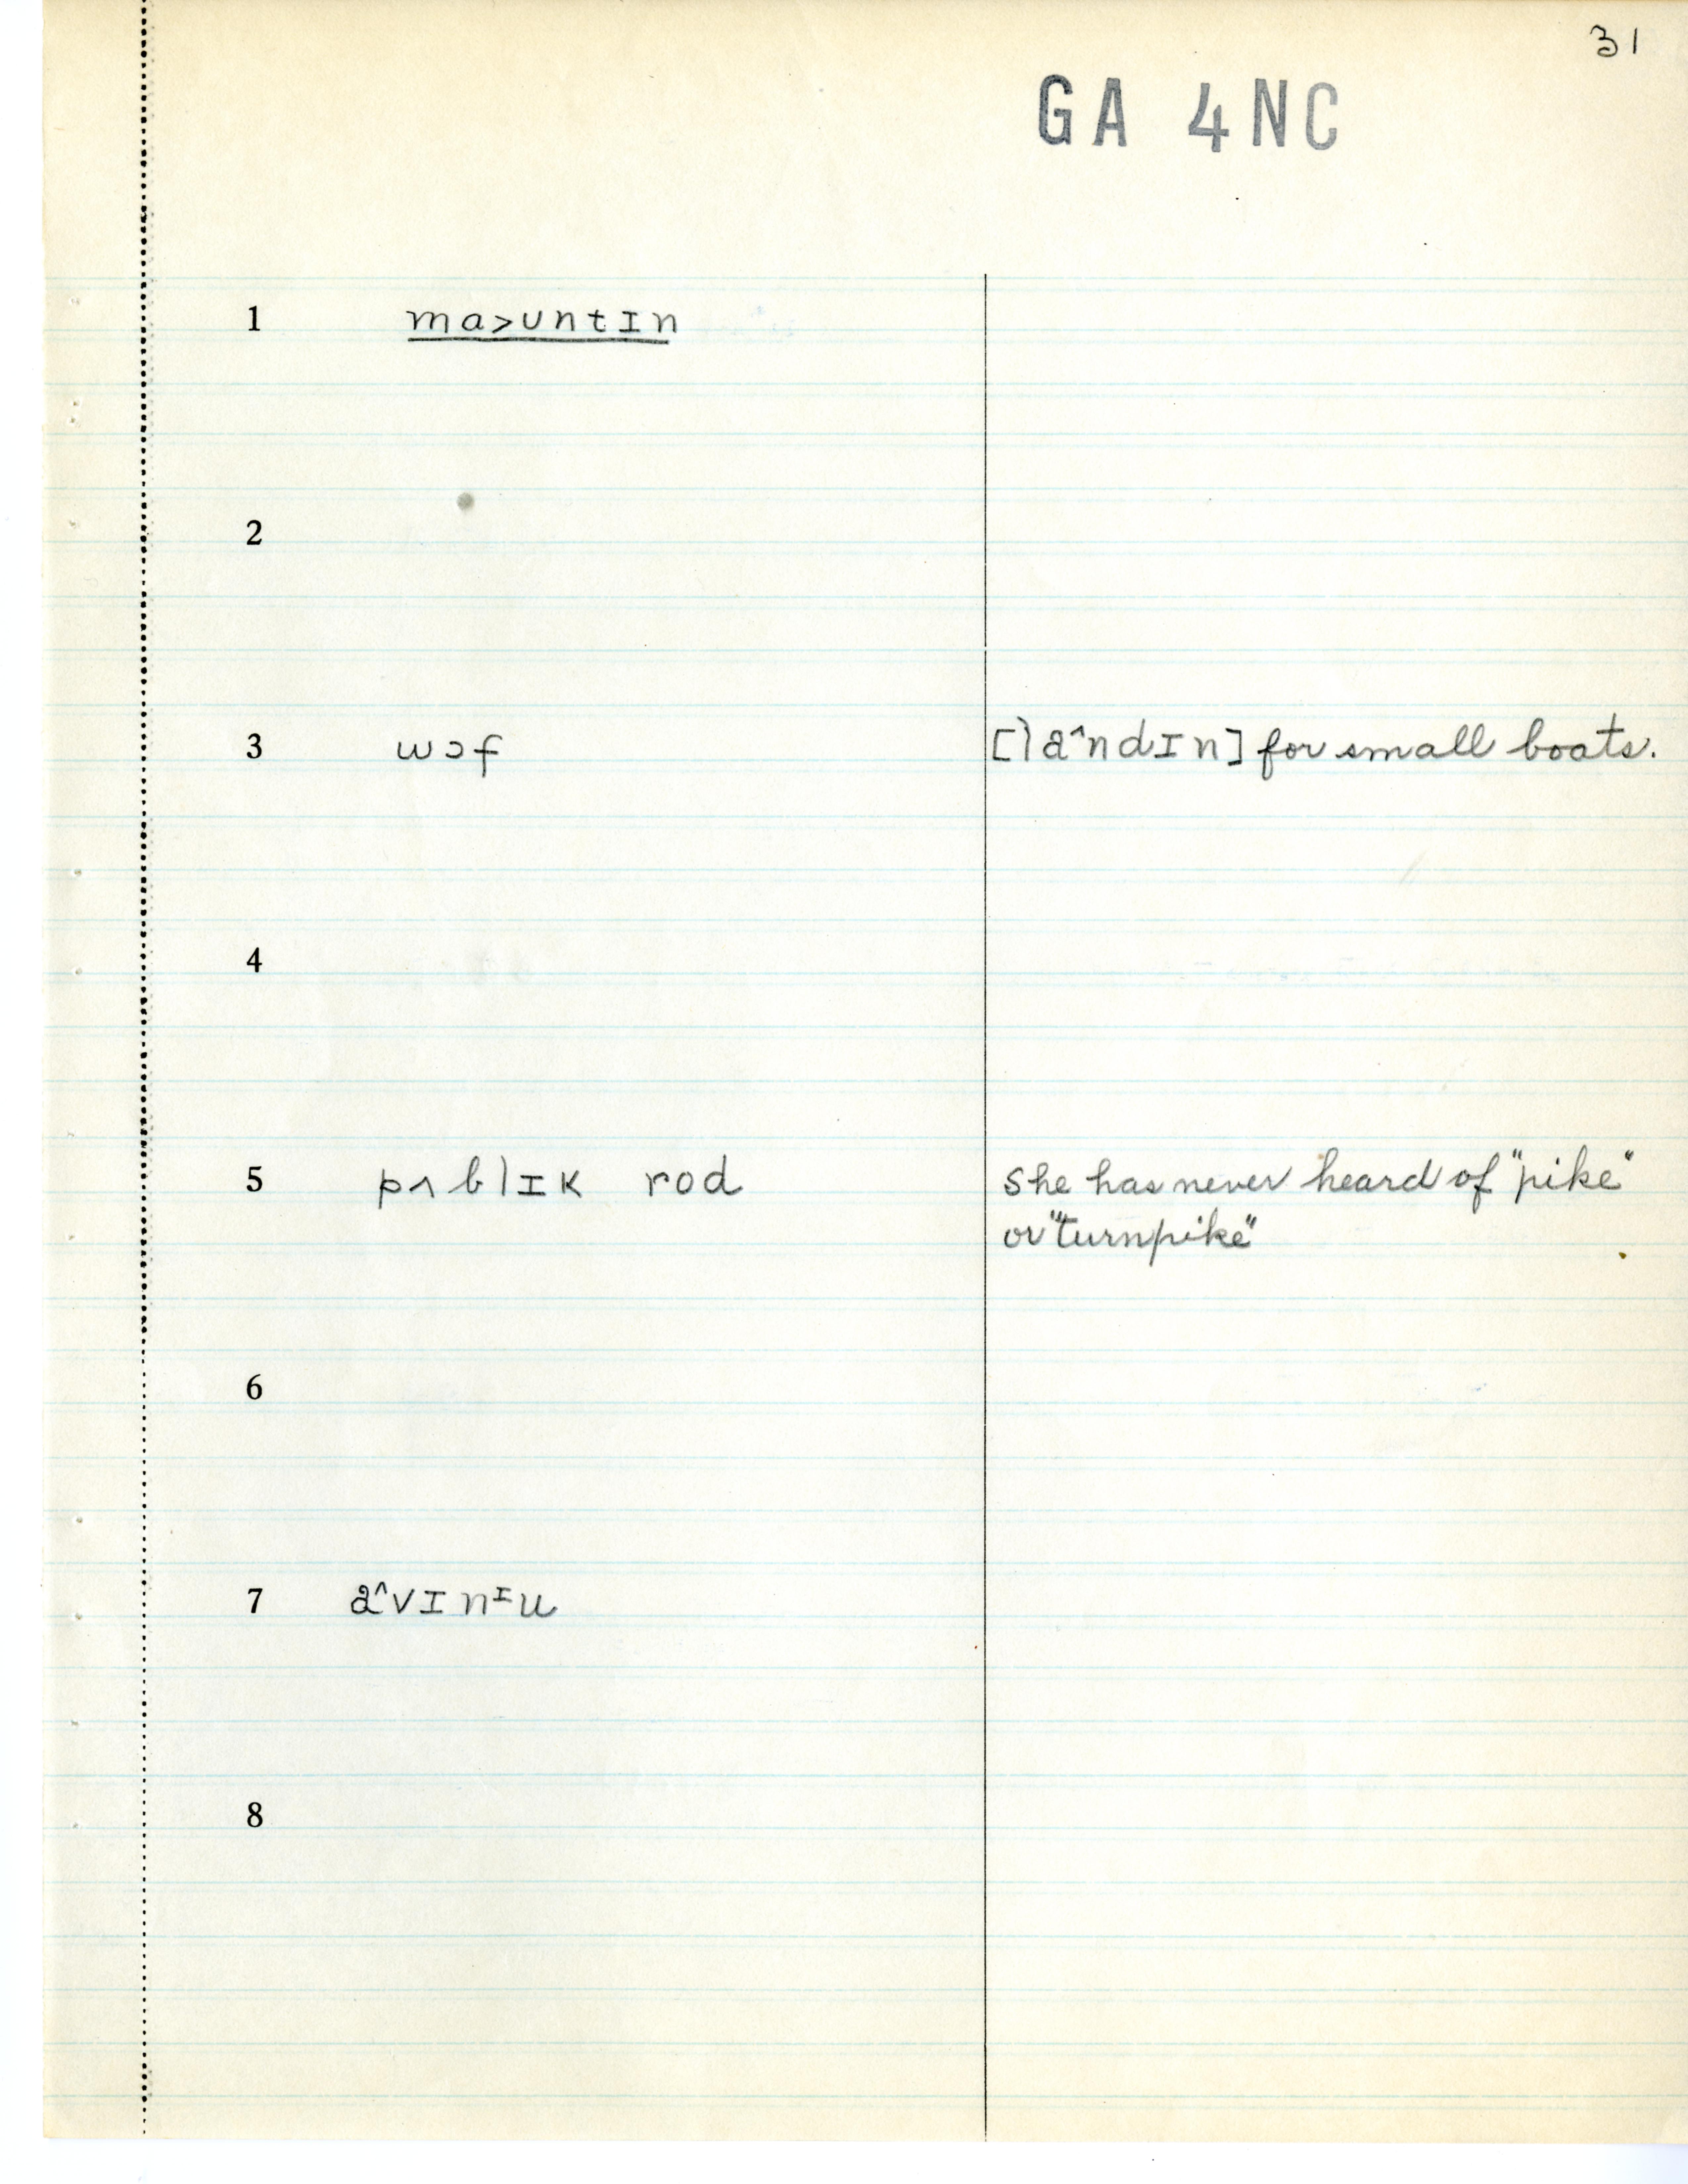 31
GA 4NC
1 ma>ʊntɪn
2
3 wɔf [la^ndɪn] for small boats.
4
5 pʌblɪk rod She has never heard of "pike"
or "turnpike"
6
7 a^vɪnᶦu
8